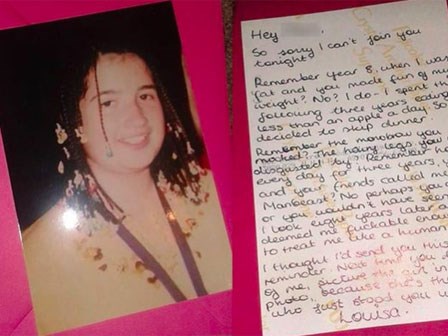 Hey
So sorry I can't join you
tonight.
Remember Year 8, when I was
fat and you made fun of my
weight? No? I do - I spent the
following three years eating
less than an apple a day. So I
decided to skip dinner.
Remember the monobrow you
mocked? The hairy legs you
disgusted by? Remember how
every day for three years
and your friends called me
Manbeast? No perhaps you
or you wouldn't have seen
I look eight years later and
deemed me fuckable enough
to treat me like a human
I thought I'd send you this
reminder. Next time you
of me, picture this girl in
photo, because she's the
who just stood you up.
Louisa.